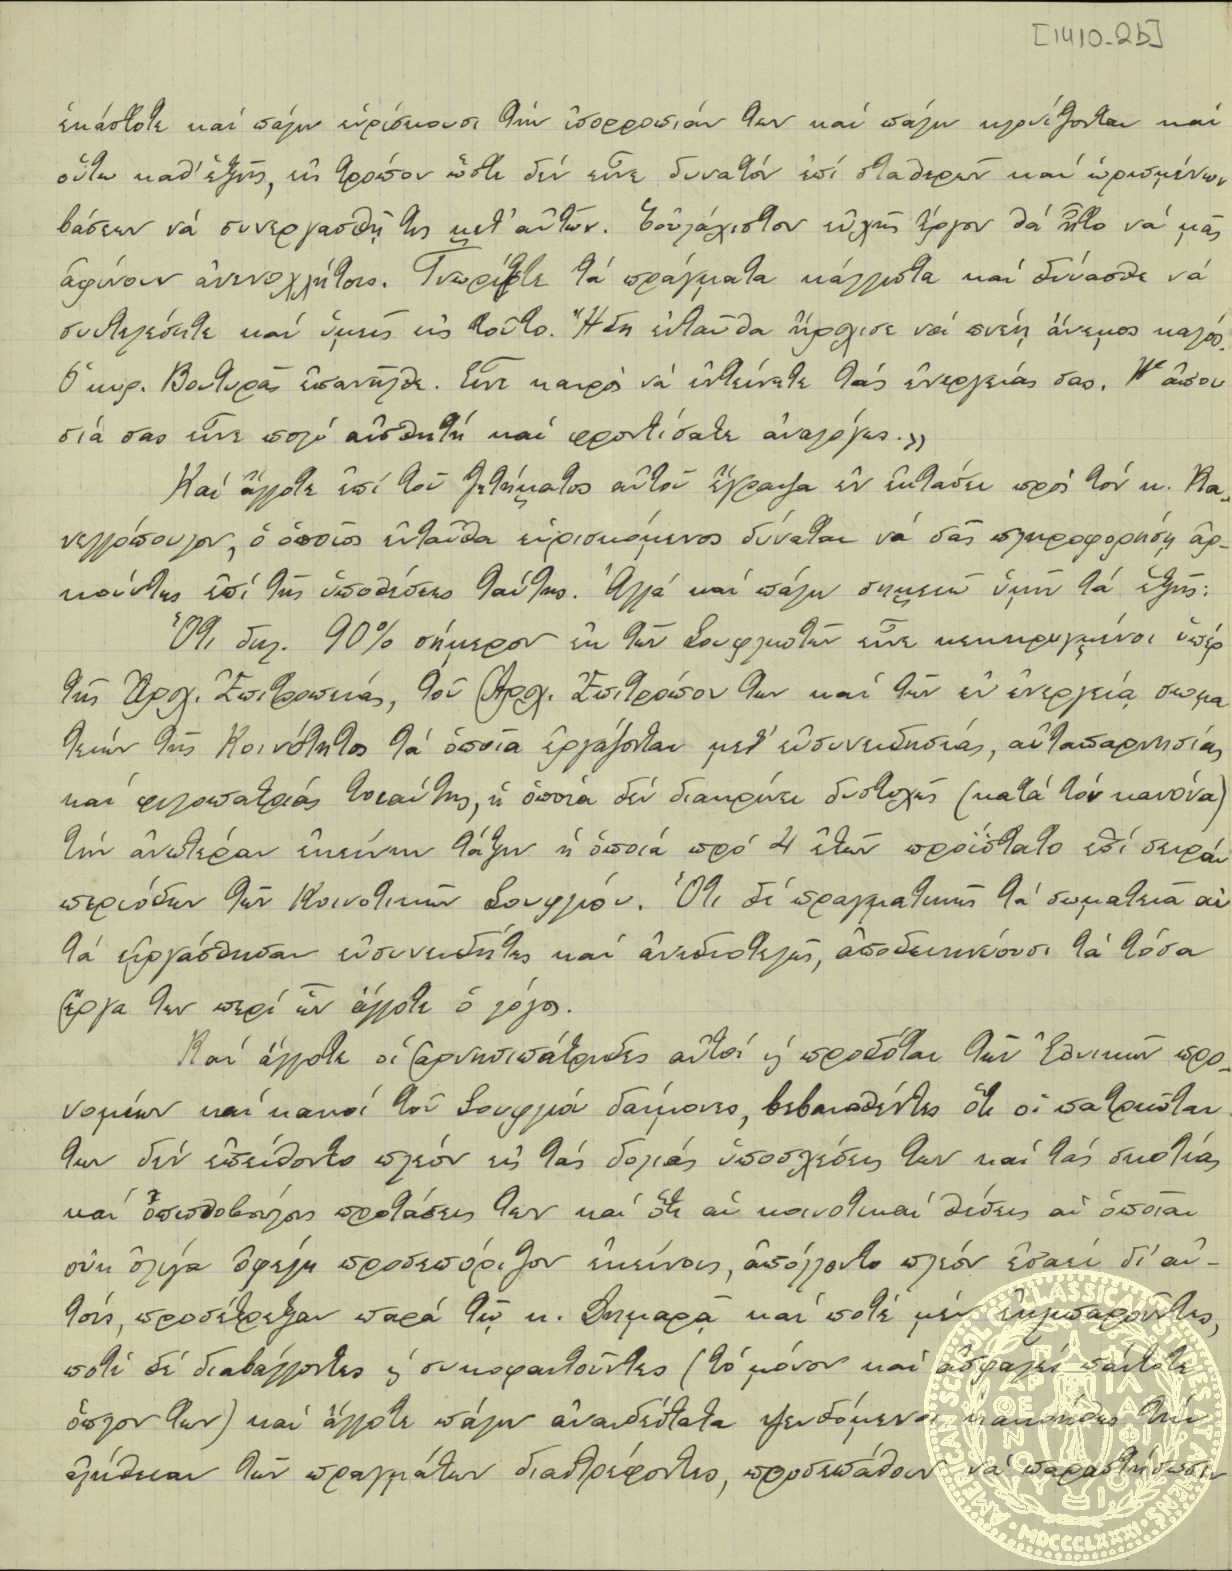 [1410-2b]
ἑκάστοτε καί πάλιν εὑρίσκουσι τήν ἰσορροπίαν των καί πάλιν κλονίζονται καί
οὕτω καθ' ἑξῆς, εἰς τρόπον ὥστε δέν εἶνε δυνατόν ἐπί σταθερῶν καί ὡρισμένων
βάσεων νά συνεργασθῇ τις μετ' αὐτῶν. Τοὐλάχιστον εὐχῆς ἔργον θά ἦτο νά μᾶς
ἀφίνουν ἀνενοχλήτους. Γνωρίζετε τά πράγματα κάλλιστα καί δύνασθε νά
συντελέσητε καί ὑμεῖς εἰς τοῦτο. Ἤδη ἐνταῦθα ἤρχισε νά πνέῃ ἄνεμος καλός.
Ὁ κυρ. Βουτυρᾶς ἐπανῆλθε. Εἶνε καιρός νά ἐντείνετε τάς ἐνεργείας σας. Ἡ ἀπου
σία σας εἶνε πολύ αἰσθητή καί φροντίσατε ἀναλόγως.»
Καί ἄλλοτε ἐπί τοῦ ζητήματος αὐτοῦ ἔγραψα ἐν ἐκτάσει πρός τόν κ. Κα-
νελλόπουλον, ὁ ὁποῖος ἐνταῦθα εὑρισκόμενος δύναται νά σᾶς πληροφορήσῃ ἀρ-
κούντως ἐπί τῆς ὑποθέσεως ταύτης. Ἀλλά καί πάλιν σημειῶ ὑμῖν τά ἑξῆς:
Ὅτι δηλ. 90% σήμερον ἐκ τῶν Σουφλιωτῶν εἶνε κεκηρυγμένοι ὑπέρ
τῆς Ἀρχ. Ἐπιτροπείας, τοῦ Ἀρχ. Ἐπιτρόπου των καί τῶν ἐν ἐνεργείᾳ σωμα
τείων τῆς Κοινότητος τά ὁποῖα ἐργάζονται μετ' εὐσυνειδησίας, αὐταπαρνησίας
καί φιλοπατρίας τοιαύτης, ἡ ὁποία δέν διακρίνει δυστυχῶς (κατά τόν κανόνα)
τήν ἀνωτέραν ἐκείνην τάξιν ἡ ὁποία πρό 4 ἐτῶν προΐστατο ἐπί σειράν
περιόδων τῶν Κοινοτικῶν Σουφλίου. Ὅτι δέ πραγματικῶς τά σωματεῖα αὐ
τά εἰργάσθησαν εὐσυνειδήτως καί ἀνιδιοτελῶς, ἀποδεικνύουσι τά τόσα
ἔργα των περί ὧν ἄλλοτε ὁ λόγος.
Καί ἄλλοτε οἱ ἀρνησιπάτριδες αὐτοί ἤ προδόται τῶν Ἐθνικῶν προ-
νομίων καί κακοί τοῦ Σουφλίου δαίμονες, βεβαιωθέντες ὅτι οἱ πατριῶται
των δέν ἐπείθοντο πλέον εἰς τάς δολίας ὑποσχέσεις των καί τάς σκοτίας
καί ὀπισθοβούλους προτάσεις των καί ὅτι αἱ κοινοτικαί θέσεις αἱ ὁποῖαι
οὐκ ὀλίγα ὀφέλη προσεπόριζον ἐκείνοις, ἀπώλλοντο πλέον ἐσαεί δι' αὐ-
τούς, προσέτρεξαν παρά τῷ κ. Δημαρᾷ καί ποτέ μέν ἐκλιπαροῦντες,
ποτέ δέ διαβάλλοντες ἤ συκοφαντοῦντες (τό μόνον καί ἀσφαλές πάντοτε
ὅπλον των) καί ἄλλοτε πάλιν ἀναιδέστατα ψευδόμενοι κακοήθως τήν
ἀλήθειαν τῶν πραγμάτων διαστρέφοντες, προσεπάθουν νά παραστήσωσιν